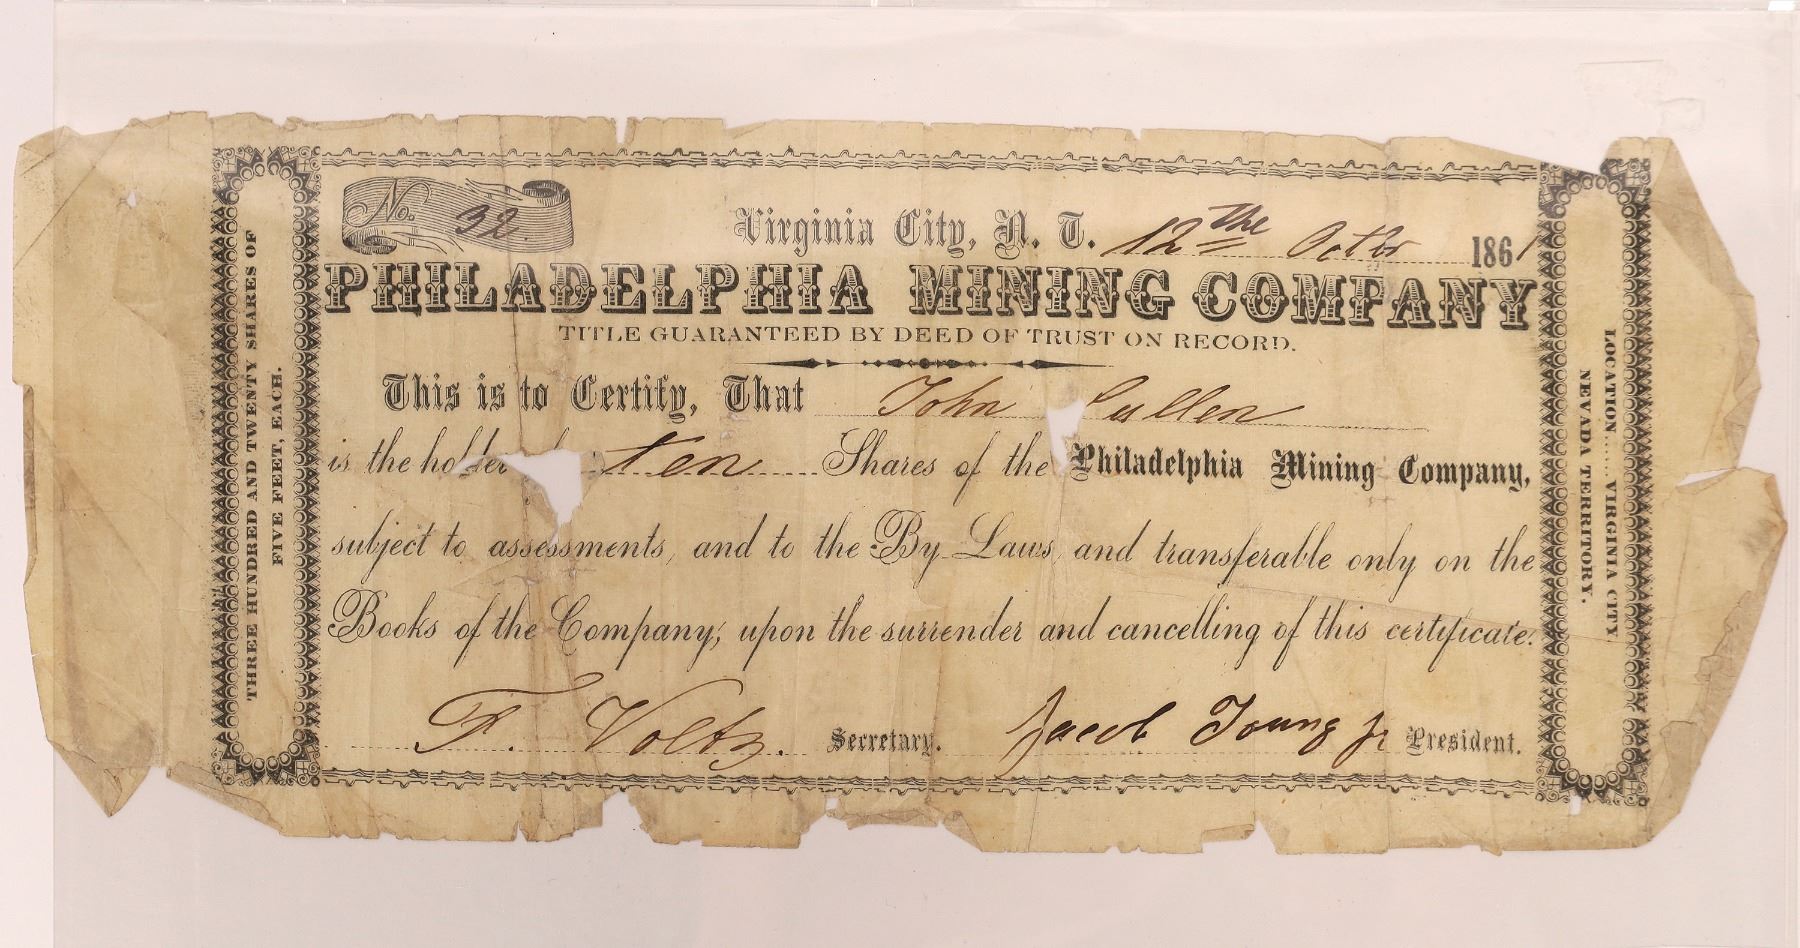 No. 32
Virginia City, N. T. 12th the Octbr 1861
PHILADELPHIA MINING COMPANY
TITLE GUARANTEED BY DEED OF TRUST ON RECORD.
This is to Certify, That John Cullen
is the holder ten Shares of the Philadelphia Mining Company,
subject to assessments, and to the By Laws, and transferable only on the
Books of the Company, upon the surrender and cancelling of this certificate.
F. Voltz. Secretary. Jacob Young Jr President.
THREE HUNDRED AND TWENTY SHARES OF
FIVE FEET, EACH.
LOCATION......VIRGINIA CITY
NEVADA TERRITORY.